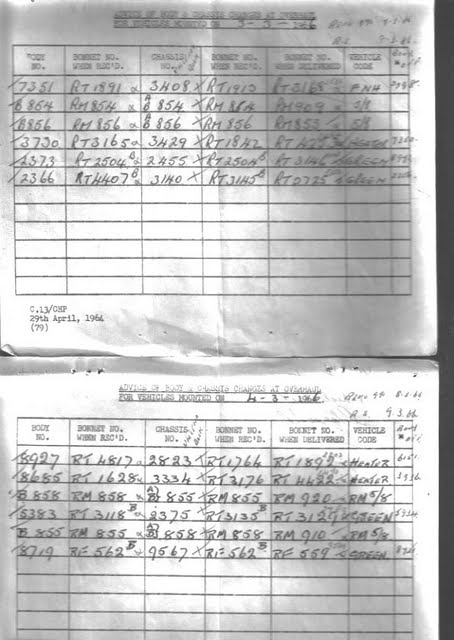 ADVICE OF BODY & CHASSIS CHANGES AT OVERHAUL
FOR VEHICLES MOUNTED ON 3-3-1966
BODY NO. BONNET NO. WHEN REC'D. CHASSIS NO. BONNET NO. WHEN REC'D. BONNET NO. WHEN DELIVERED VEHICLE CODE
7351 RT1891 3408 RT1913
B854 RM854 A B 854 RM854 RM909 5/8
B856 RM856 A B 856 RM856 RM853 5/8
3730 RT3165 3429 RT1842 HEATER
2373 RT2504 B 2455 RT2504 B RT3146 GREEN
2366 RT4407 B 3140 RT3145 B GREEN
C.13/CHP
29th April, 1964
(79)
ADVICE OF BODY & CHASSIS CHANGES AT OVERHAUL
FOR VEHICLES MOUNTED ON 4-3-1966. 9.3.66
BODY NO. BONNET NO. WHEN REC'D. CHASSIS NO. BONNET NO. WHEN REC'D. BONNET NO. WHEN DELIVERED VEHICLE CODE
8927 RT4817 2823 RT1764 HEATER
8685 RT1628 3334 RT3176 RT4422 HEATER
B858 RM858 A B 855 RM855 RM920 RM5/8
5383 RT3118 B 2375 RT3135 B GREEN
B855 RM855 A B 858 RM858 RM910 RM5/8
8719 RF562 B 9567 RF562 B RF559 GREEN